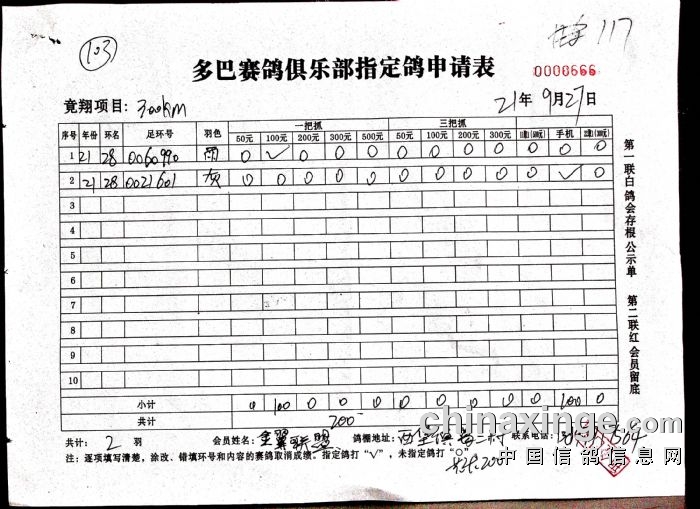 103
117
多巴赛鸽俱乐部指定鸽申请表
0000666
竟翔项目: 300km
21年 9月 27日
序号 年份 环名 足环号 羽色 一把抓 三把抓
50元 100元 200元 300元 500元 50元 100元 200元 300元 手机
1 21 28 0060990 雨 0 √ 0 0 0 0 0 0 0 0 0 0
2 21 28 0021601 灰 0 0 0 0 0 0 0 0 0 0 √ 0
3
4
5
6
7
8
9
10
小计 0 100 0 0 0 0 0 0 0 0 100 0
共计 200
共计: 2 羽 会员姓名: 金翼联盟 鸽棚地址: 联系电话:
注: 逐项填写清楚, 涂改、错填环号和内容的赛鸽取消成绩。指定鸽打“√”, 未指定鸽打“O”。
第一联白 鸽会存根 公示单
第二联红 会员留底
chinaxinge.com
中国信鸽信息网